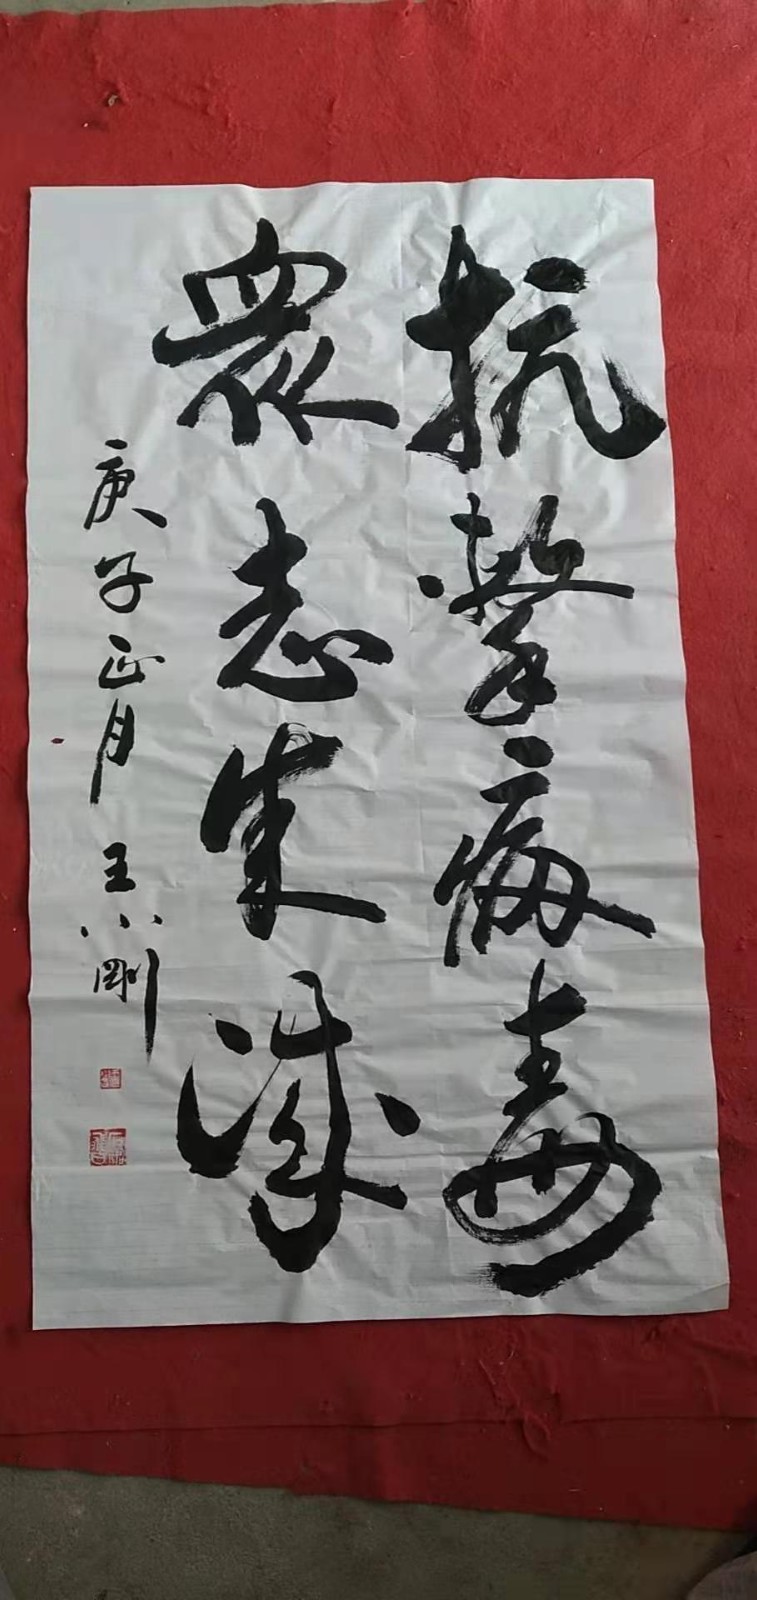 抗擊病毒
衆志成城
庚子正月 王小剛